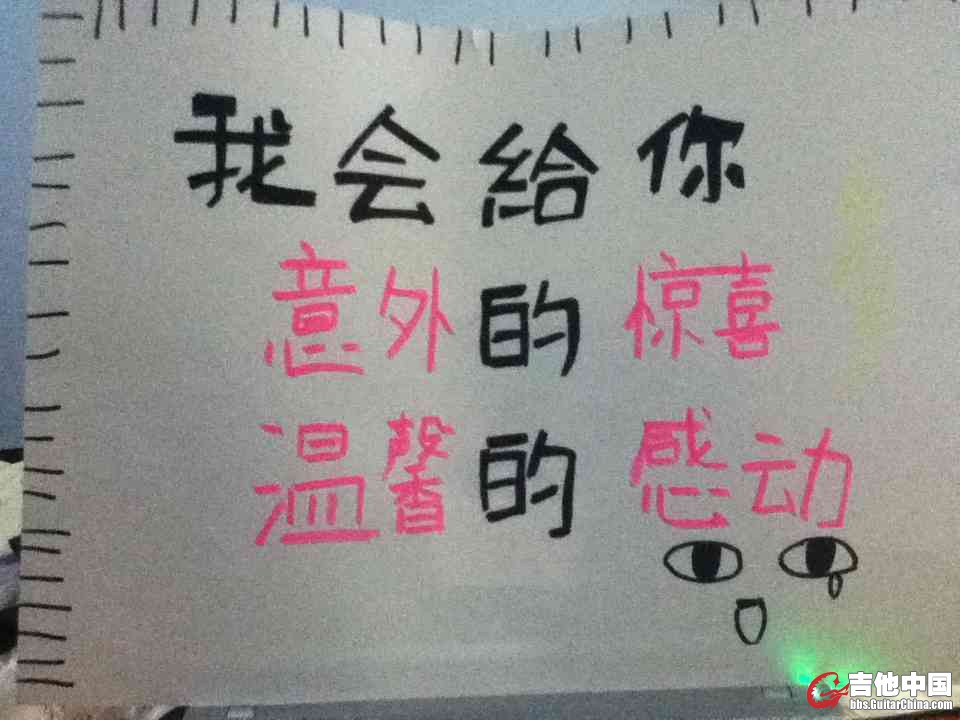 我会给你
意外的惊喜
温馨的感动
吉他中国
bbs.GuitarChina.com